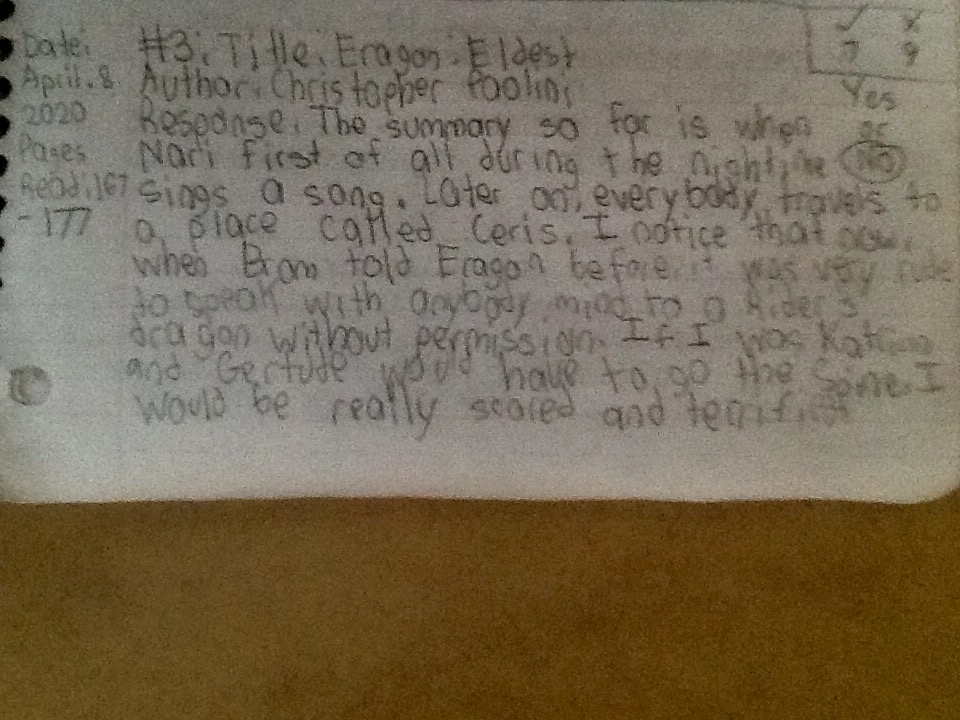 Date: #3: Title: Eragon: Eldest
April. 8 Author: Christopher Poolini
2020 Response: The summary so far is when
Pages Nari first of all during the night, he
Read: 167 sings a song. Later on, everybody travels to
- 177 a place called Ceris. I notice that
when Brom told Eragon before it was very rude
to speak with anybody mind to a Rider's
dragon without permission. If I was Katrina
and Gertude would have to go the same. I
would be really scared and terrified
✓ X
7 9
Yes
or
No